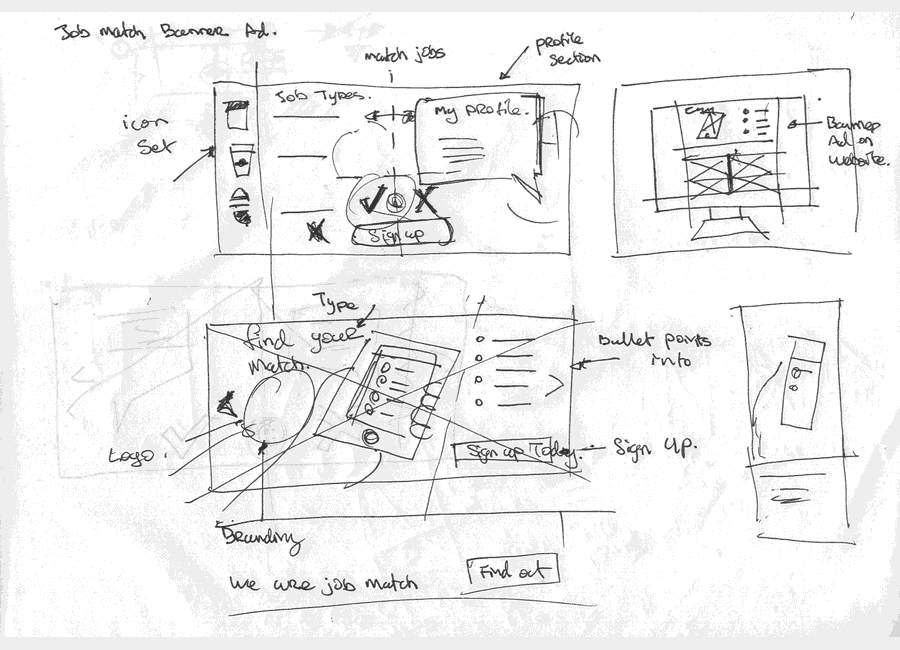 Job match Banner Ad.
match jobs
profile
section
icon
set
Job Types.
My profile.
Sign up
Banner
Ad on
website.
Type
find your
match.
Bullet points
into
Logo.
Sign up Today.
Sign up.
Branding
We are job match
Find out